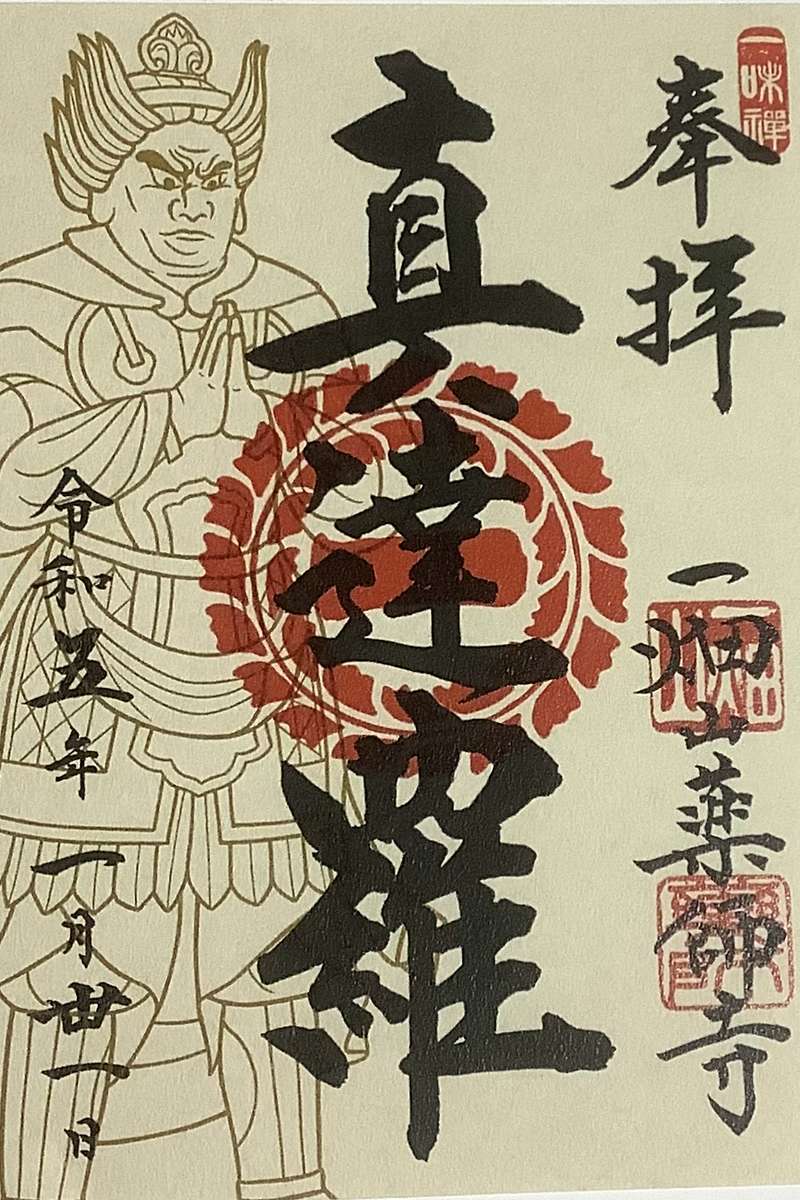 一味禅
奉拝
一畑山薬師寺
真達羅
令和五年一月丗一日